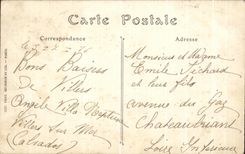 Carte Postale
Correspondance
Adresse
Bons Baisers
De Villers
Angèle Villa
Villers Sur Mer
(Calvados)
Monsieur et Madame
Emile Pichard
et leur fils
avenue du Gaz
Chateaubriant
Loire Inférieure